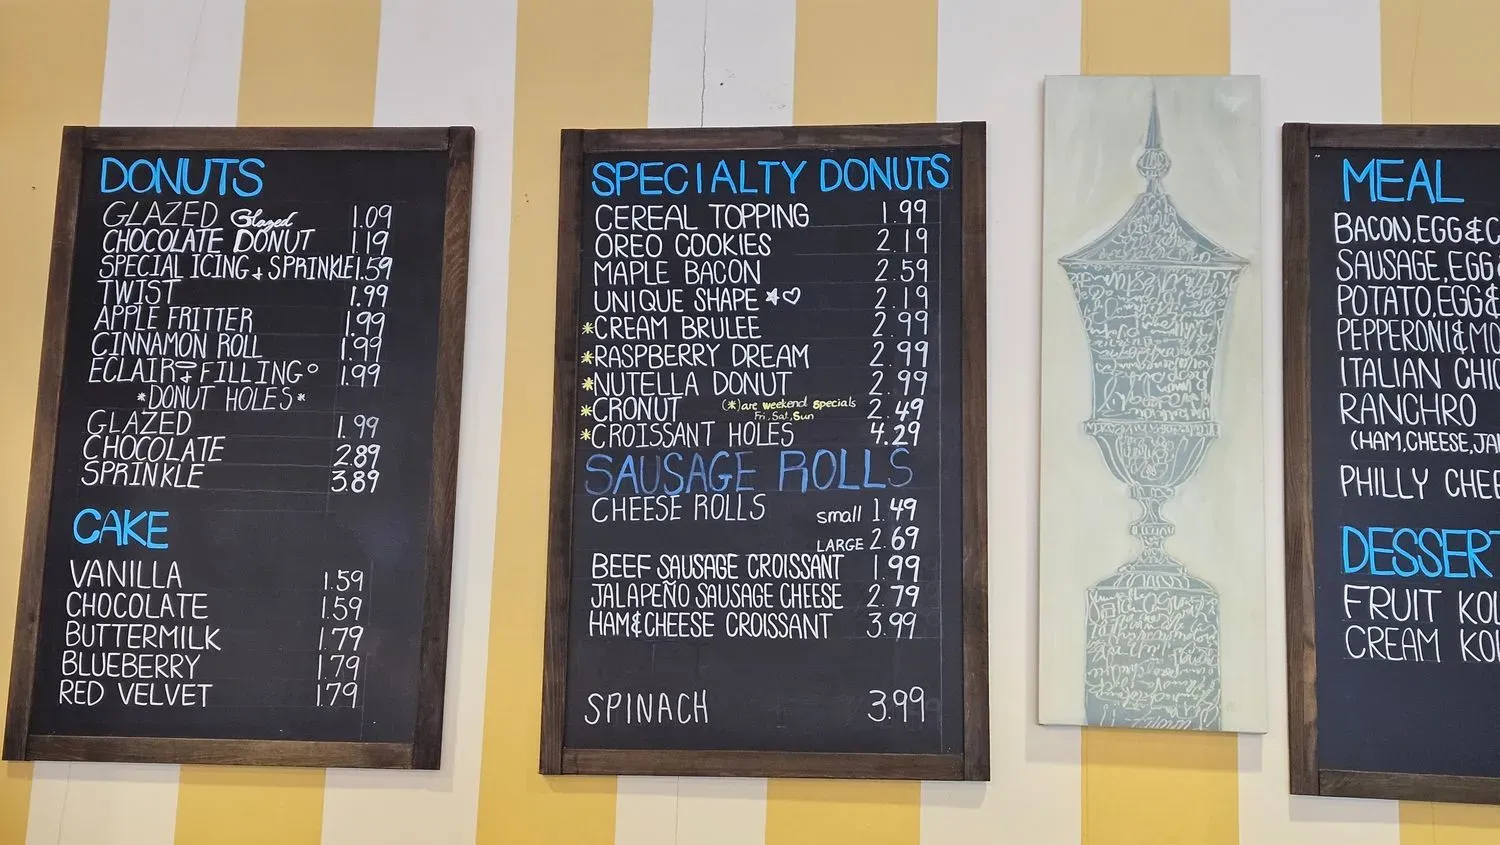 DONUTS
GLAZED Glazed 1.09
CHOCOLATE DONUT 1.19
SPECIAL ICING & SPRINKLE 1.59
TWIST 1.99
APPLE FRITTER 1.99
CINNAMON ROLL 1.99
ECLAIR & FILLING 1.99
*DONUT HOLES*
GLAZED 1.99
CHOCOLATE 2.89
SPRINKLE 3.89
CAKE
VANILLA 1.59
CHOCOLATE 1.59
BUTTERMILK 1.79
BLUEBERRY 1.79
RED VELVET 1.79
SPECIALTY DONUTS
CEREAL TOPPING 1.99
OREO COOKIES 2.19
MAPLE BACON 2.59
UNIQUE SHAPE ★♡ 2.19
*CREAM BRULEE 2.99
*RASPBERRY DREAM 2.99
*NUTELLA DONUT 2.99
*CRONUT (*) are weekend specials 2.49
Fri, Sat, Sun
*CROISSANT HOLES 4.29
SAUSAGE ROLLS
CHEESE ROLLS small 1.49
LARGE 2.69
BEEF SAUSAGE CROISSANT 1.99
JALAPEÑO SAUSAGE CHEESE 2.79
HAM&CHEESE CROISSANT 3.99
SPINACH 3.99
MEAL
BACON,EGG&C
SAUSAGE,EGG
POTATO,EGG&
PEPPERONI&MO
ITALIAN CHIC
RANCHRO
(HAM,CHEESE,JA
PHILLY CHEE
DESSERT
FRUIT KOL
CREAM KOL